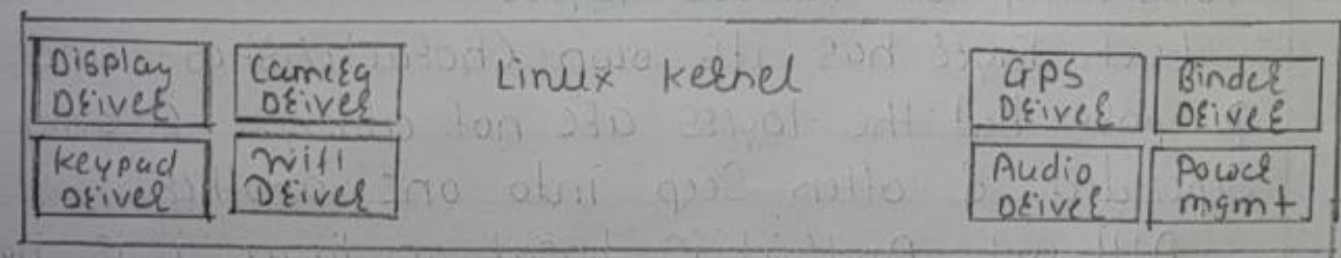 Display
Driver
Camera
Driver
Linux kernel
GPS
Driver
Binder
Driver
Keypad
Driver
Wifi
Driver
Audio
Driver
Power
mgmt